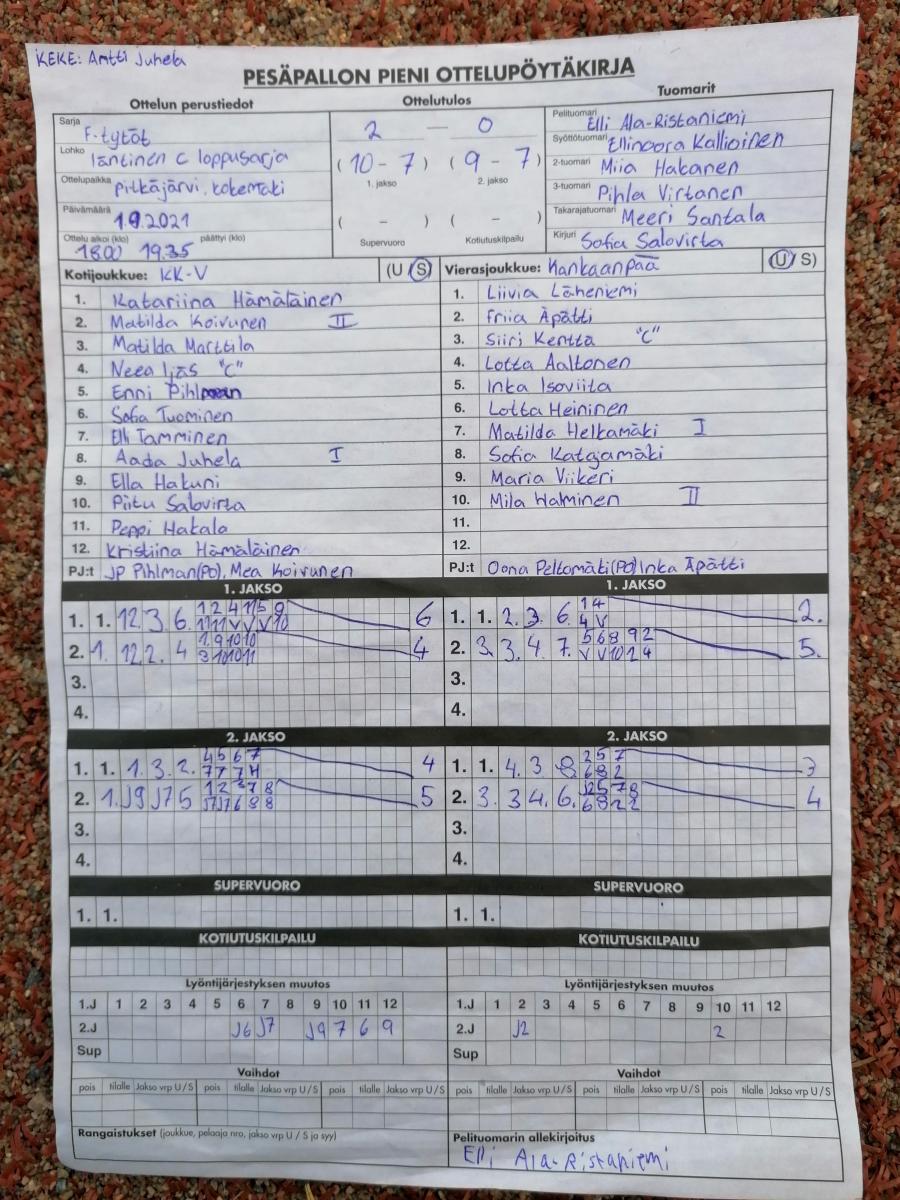 KEKE: Antti Juhela
PESÄPALLON PIENI OTTELUPÖYTÄKIRJA
Ottelun perustiedot
Sarja F-tytöt
Lohko läntinen C loppusarja
Ottelupaikka Pitkäjärvi, Kokemäki
Päivämäärä 1.9.2021
Ottelu alkoi (klo) päättyi (klo)
18.00 19.35
Ottelutulos
2 — 0
(10 - 7) (9 - 7)
1. jakso 2. jakso
( - ) ( - )
Supervuoro Kotiutuskilpailu
Tuomarit
Pelituomari Elli Ala-Ristaniemi
Syöttötuomari Ellinoora Kallioinen
2-tuomari Miia Hakanen
3-tuomari Pihla Virtanen
Takarajatuomari Meeri Santala
Kirjuri Sofia Salovirta
Kotijoukkue: KK-V (U S)
1. Katariina Hämäläinen
2. Matilda Koivunen II
3. Matilda Marttila
4. Neea Ijäs "C"
5. Enni Pihlman
6. Sofia Tuominen
7. Elli Tamminen
8. Aada Juhela I
9. Ella Hakuni
10. Piitu Salovirta
11. Peppi Hakala
12. Kristiina Hämäläinen
PJ:t JP Pihlman(PO), Mea Koivunen
Vierasjoukkue: Kankaanpää (U S)
1. Liivia Läheniemi
2. Friia Äpätti
3. Siiri Kentta "C"
4. Lotta Aaltonen
5. Inka Isoviita
6. Lotta Heininen
7. Matilda Helkamäki I
8. Sofia Katajamäki
9. Maria Viikeri
10. Mila Halminen II
11.
12.
PJ:t Oona Peltomäki(PO) Inka Äpätti
1. JAKSO
1. 1. 12. 3 6. 6
2. 1. 12. 2. 4 4
3.
4.
1. JAKSO
1. 1. 2. 3. 6. 2.
2. 3. 3. 4. 7. 5.
3.
4.
2. JAKSO
1. 1. 1. 3. 2. 4 5 6 7 4
2. 1. J9 J7 5 5
3.
4.
2. JAKSO
1. 1. 4. 3. 8 2 5 7 3
6 8 2
2. 3. 3 4. 6. J2 5 7 8 4
6 8 2 2
3.
4.
SUPERVUORO
1. 1.
SUPERVUORO
1. 1.
KOTIUTUSKILPAILU
KOTIUTUSKILPAILU
Lyöntijärjestyksen muutos
1.J 1 2 3 4 5 6 7 8 9 10 11 12
2.J J6 J7 J9 7 6 9
Sup
Lyöntijärjestyksen muutos
1.J 1 2 3 4 5 6 7 8 9 10 11 12
2.J J2 2
Sup
Vaihdot
pois tilalle Jakso vrp U / S pois tilalle Jakso vrp U / S pois tilalle Jakso vrp U / S
Vaihdot
pois tilalle Jakso vrp U / S pois tilalle Jakso vrp U / S pois tilalle Jakso vrp U / S
Rangaistukset (joukkue, pelaaja nro, jakso vrp U / S ja syy)
Pelituomarin allekirjoitus
Elli Ala-Ristaniemi